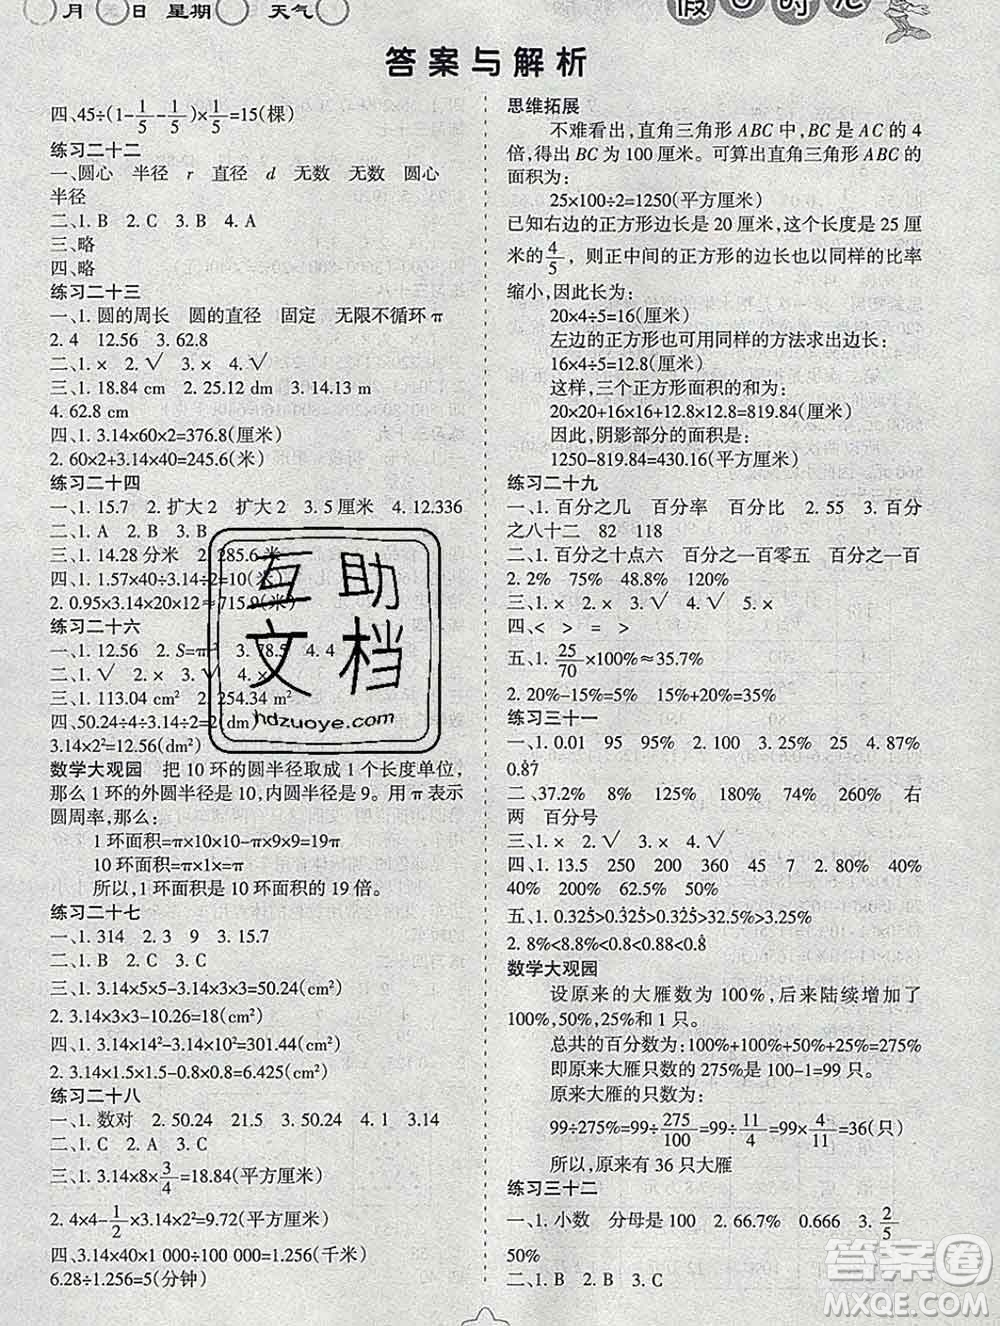 月 日 星期 天气
假日时光
答案与解析
四、45÷(1-1/5-1/5)×1/5=15(棵)
练习二十二
一、圆心 半径 r 直径 d 无数 无数 圆心
半径
二、1. B 2. C 3. B 4. A
三、略
四、略
练习二十三
一、1. 圆的周长 圆的直径 固定 无限不循环 π
2. 4 12.56 3. 62.8
二、1. × 2. √ 3. × 4. √
三、1. 18.84 cm 2. 25.12 dm 3. 14.13 m
4. 62.8 cm
四、1. 3.14×60×2=376.8(厘米)
2. 60×2+3.14×40=245.6(米)
练习二十四
一、1. 15.7 2. 扩大2 扩大2 3. 5厘米 4. 12.336
二、1. A 2. B
三、1. 14.28分米 2. 285.6米
四、1. 1.57×40÷3.14÷2=10(米)
2. 0.95×3.14×20×12≈715.9(米)
练习二十六
一、1. 12.56 2. S=π 3. 78.5 4. 4
二、1. × 2. √ 3. √ 4. ×
三、1. 113.04 cm² 2. 254.34 m²
四、50.24÷4÷3.14÷2=2(dm)
3.14×2²=12.56(dm²)
数学大观园 把10环的圆半径取成1个长度单位,
那么1环的外圆半径是10,内圆半径是9。用π表示
圆周率,那么:
1环面积=π×10×10-π×9×9=19π
10环面积=π×1×=π
所以,1环面积是10环面积的19倍。
练习二十七
一、1. 314 2. 3 9 3. 15.7
二、1. C 2. B 3. C
三、1. 3.14×5×3+3.14=50.24(cm²)
2. 3.14×3×3-10.26=18(cm²)
四、1. 3.14×10×10-3×4=301.44(cm²)
2. 3.14×1.5×1.5-3÷2=6.425(cm²)
练习二十八
一、1. 数对 2. 50.24 21.5 3. 50.24 4. 1 3.14
二、1. C 2. A 3. C
三、1. 3.14×8×3/4=18.84(平方厘米)
2. 4×4-1/2×3.14×2²=9.72(平方厘米)
四、3.14×40×1 000÷100 000=1.256(千米)
6.28÷1.256=5(分钟)
思维拓展
不难看出,直角三角形ABC中,BC是AC的4
倍,得出BC为100厘米。可算出直角三角形ABC的
面积为:
25×100÷2=1250(平方厘米)
已知右边的正方形边长是20厘米,这个长度是25厘
米的4/5,则正中间的正方形的边长也以同样的比率
缩小,因此长为:
20×4÷5=16(厘米)
左边的正方形也可用同样的方法求出边长:
16×4÷5=12.8(厘米)
这样,三个正方形面积的和为:
20×20+16×16+12.8×12.8=819.84(厘米)
因此,阴影部分的面积是:
1250-819.84=430.16(平方厘米)
练习二十九
一、1. 百分之几 百分率 百分比 2. 55 3. 百分
之八十二 82 118
二、1. 百分之十点六 百分之一百零五 百分之一百
2. 2% 75% 48.8% 120%
三、1. × 2. × 3. √ 4. √ 5. ×
四、< > = >
五、1. 25/70×100%≈35.7%
2. 20%-15%=5% 15%+20%=35%
练习三十一
一、1. 0.01 95 95 2. 100 3. 25 4. 87%
0.8̇7̇
二、37.2% 8% 125% 180% 74% 260% 右
两 百分号
三、1. × 2. √ 3. × 4. √
四、1. 13.5 250 200 360 45 7 2. 80% 40%
40% 200% 62.5% 50%
五、1. 0.325>0.325>0.325>32.5%>0.325
2. 8%<8.8%<0.8<0.88<0.8̇
数学大观园
设原来的大雁数为100%,后来陆续增加了
100%,50%,25%和1只。
总共的百分数为:100%+100%+50%+25%=275%
即原来大雁只数的275%是100-1=99只。
原来大雁的只数为:
99÷275%=99÷275/100=99÷11/4=99×4/11=36(只)
所以,原来有36只大雁
练习三十二
一、1. 小数 分母是100 2. 66.7% 0.666 3. 2/5
50%
二、1. B 2. B 3. C
互助
文档
hdzuoye.com
答案圈
MXQE.COM